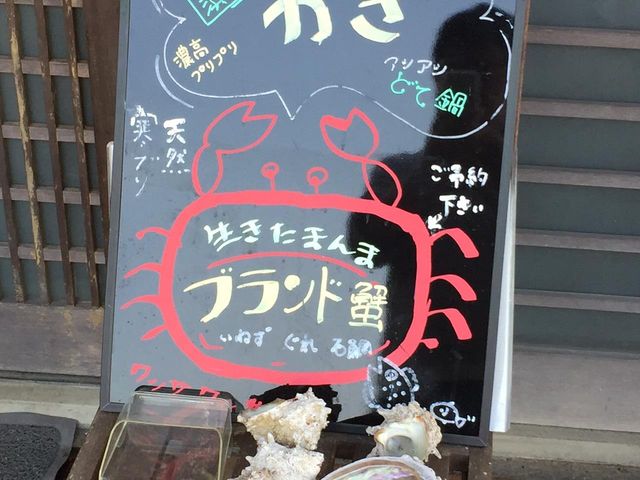 かき
濃高
プリプリ
アツアツ
どて鍋
天然
寒ぶり
ご予約
下さい
生きたまんま
ブランド蟹
いねず ぐれ 石鯛